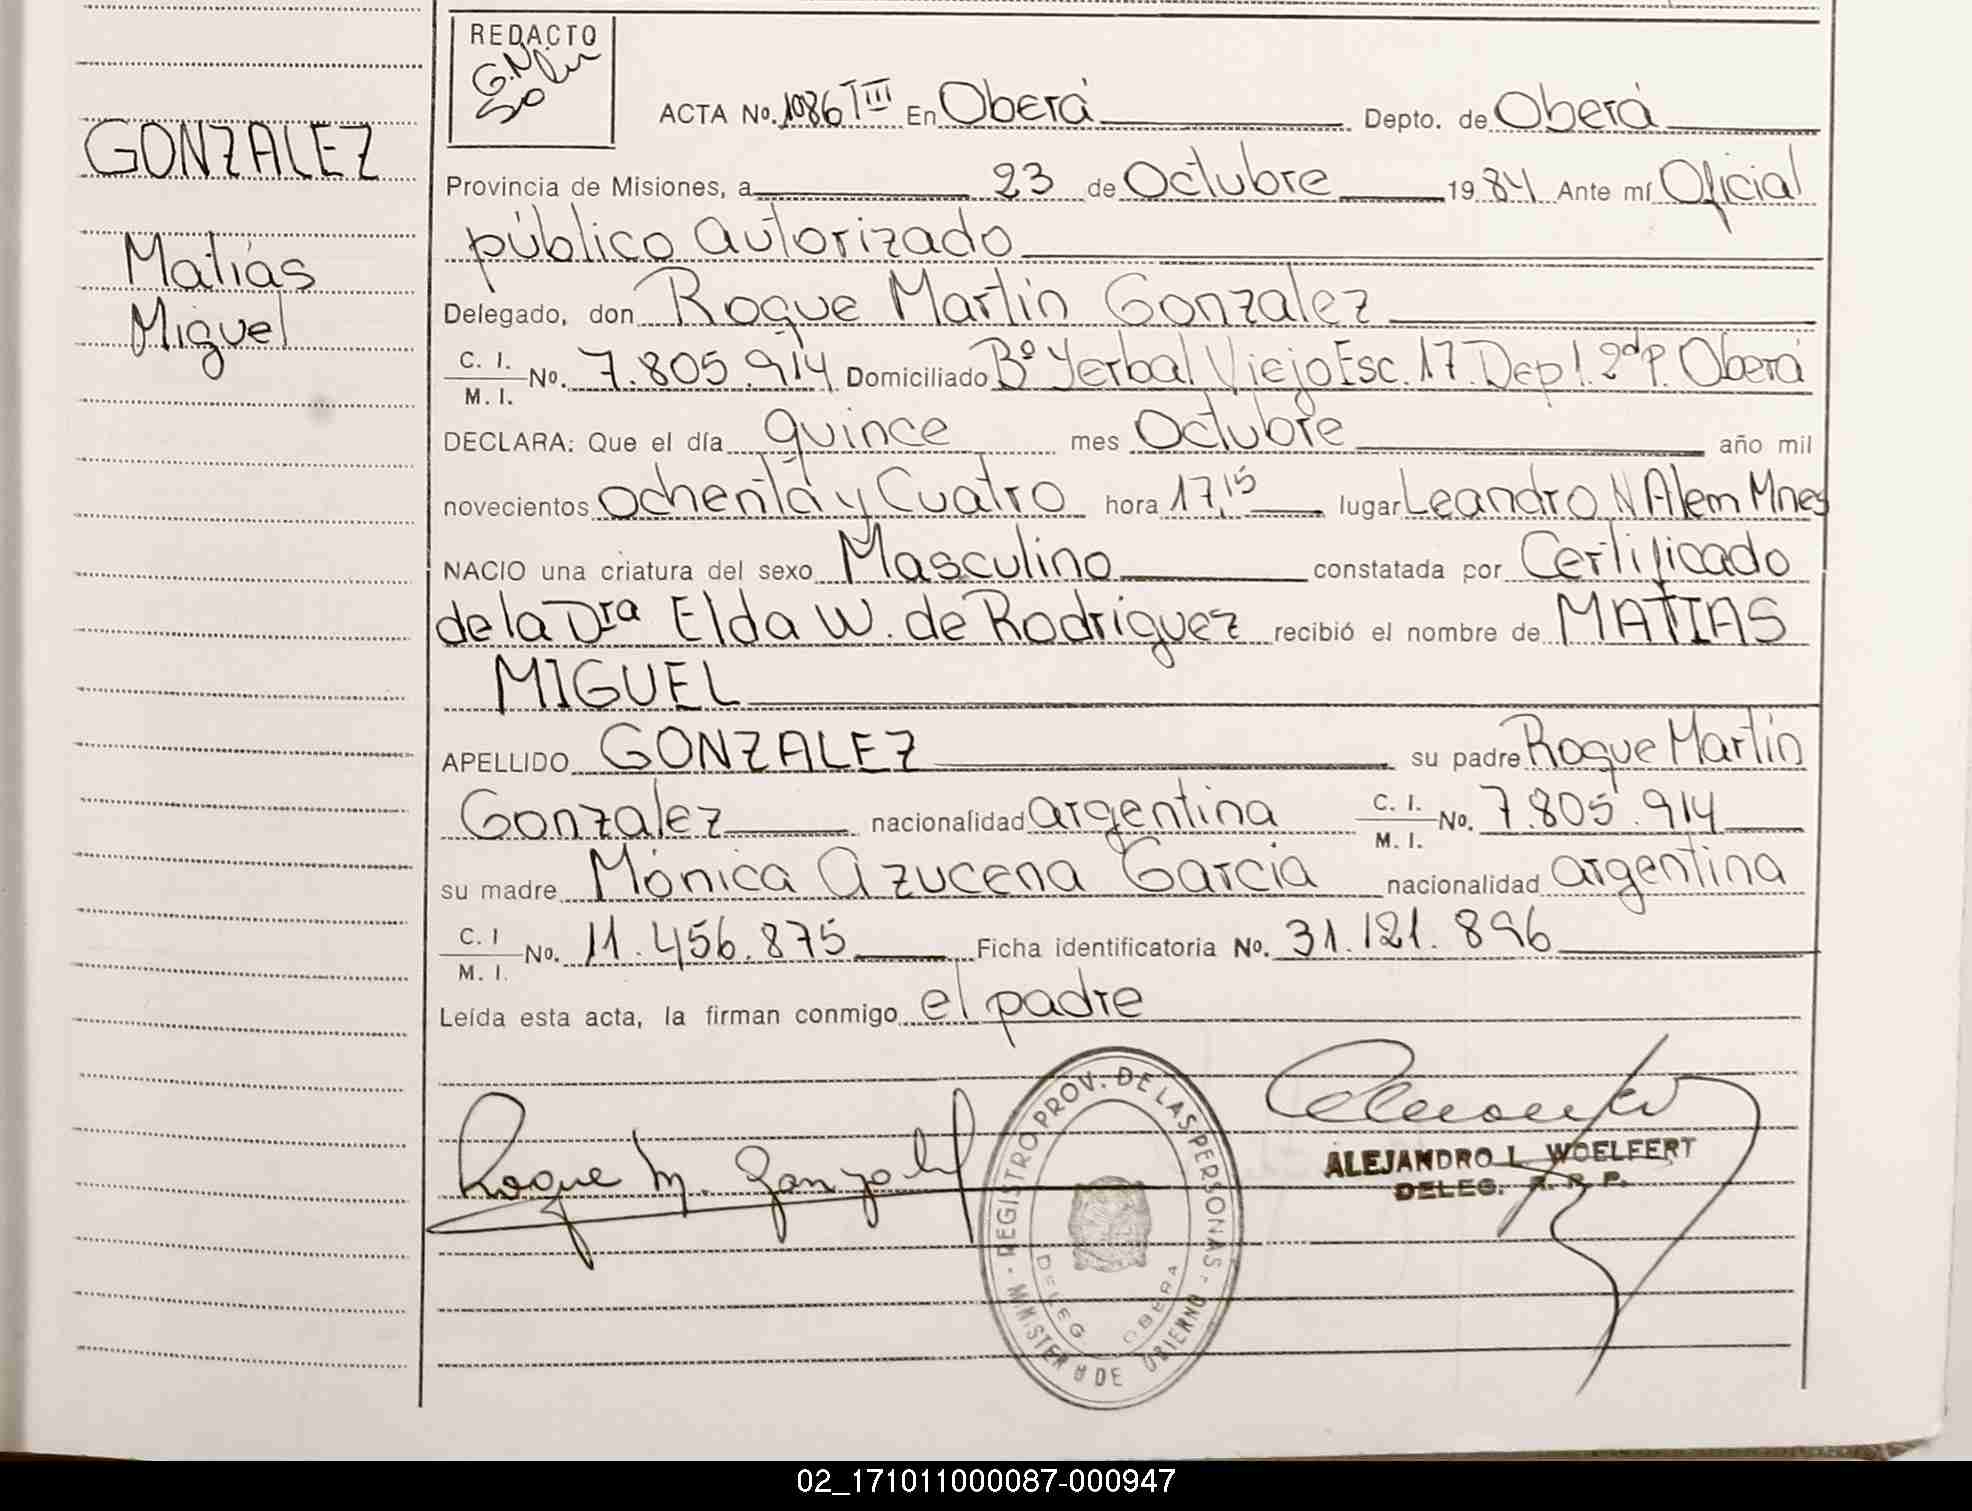 GONZALEZ
Matías
Miguel
REDACTO
ACTA No. 1086 TIII En Oberá Depto. de Oberá
Provincia de Misiones, a 23 de Octubre 1984 Ante mí Oficial
público autorizado
Delegado, don Roque Martín Gonzalez
C. I. / M. I. No. 7.805.914 Domiciliado Bº Yerbal Viejo Esc. 17. Dep 1. 2dº P. Oberá
DECLARA: Que el día quince mes Octubre año mil
novecientos ochenta y Cuatro hora 17,15 lugar Leandro N Alem Mnes
NACIO una criatura del sexo Masculino constatada por Certificado
de la Dra Elda W. de Rodriguez recibió el nombre de MATIAS
MIGUEL
APELLIDO GONZALEZ su padre Roque Martín
Gonzalez nacionalidad argentina C. I. / M. I. No. 7.805.914
su madre Mónica Azucena García nacionalidad argentina
C. I / M. I. No. 11.456.875 Ficha identificatoria No. 31.121.896
Leída esta acta, la firman conmigo el padre
Roque M. Gonzalez
REGISTRO PROV. DE LAS PERSONAS
DELEG OBERA
MINISTER DE OBIERNO
ALEJANDRO L. WOELFERT
DELEG. R. R. P.
02_171011000087-000947